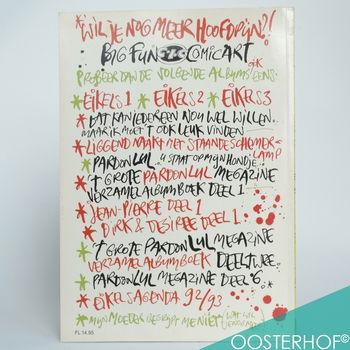 *WIL JE NOG MEER HOOFDPIJN?!
BIG FUN COMIC ART
PROBEER DAN DE VOLGENDE ALBUMS EENS:
*EIKELS 1 *EIKELS 2 *EIKELS 3
*DAT KAN IEDEREEN NOU WEL WILLEN..
MAAR IK MOET 'T OOK LEUK VINDEN
*LIGGEND NAAKT MET STAANDE SCHEMER-
LAMP
*PARDON LUL.. U STAAT OP MIJN HONDJE..
*'T GROTE PARDON LUL MEGAZINE
VERZAMELALBUMBOEK DEEL 1
*JEAN-PIERRE DEEL 1
*DIRK & DESIREE DEEL 1
*'T GROTE PARDON LUL MEGAZINE
VERZAMELALBUMBOEK DEEL TWEE
*PARDON LUL MEGAZINE DEEL 6
*EIKELSAGENDA 92/93
*MIJN MOEDER BEGRIJPT ME NIET (WAT WIL
FL 14.95
OOSTERHOF©